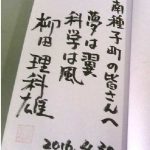 南種子町の皆さんへ
夢は翼
科学は風
柳田理科雄